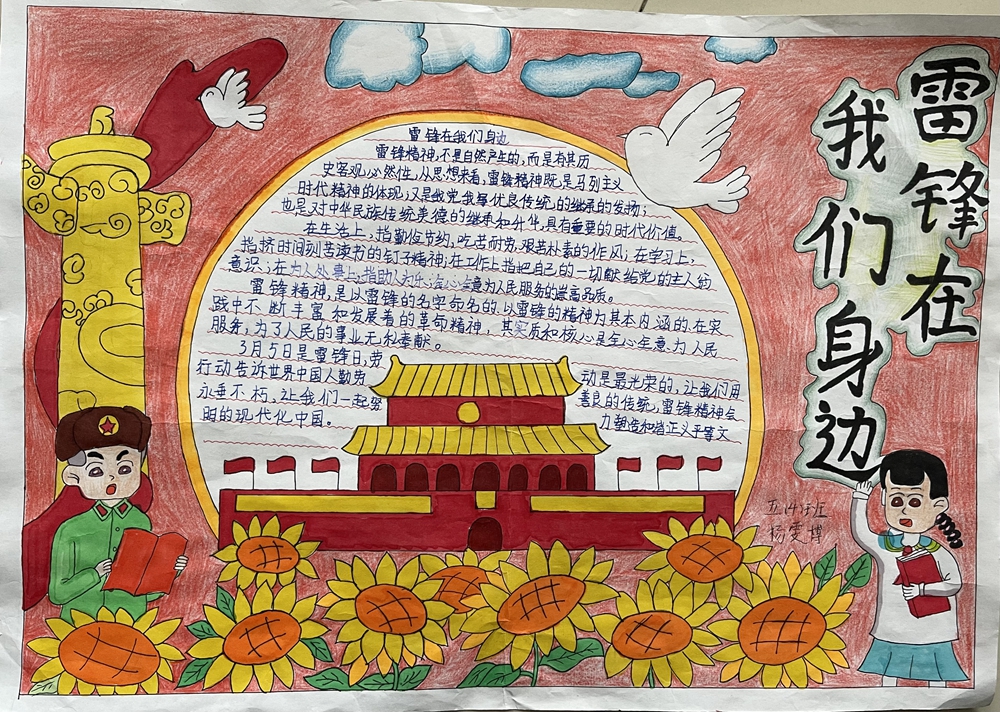 雷锋在
我们身边
雷锋在我们身边
雷锋精神,不是自然产生的,而是有其历
史客观必然性,从思想来看,雷锋精神既是马列主义
时代精神的体现,又是我党我军优良传统的继承的发扬;
也是对中华民族传统美德的继承和升华,具有重要的时代价值。
在生活上,指勤俭节约,吃苦耐劳,艰苦朴素的作风;在学习上,
指挤时间刻苦读书的钉子精神;在工作上指把自己的一切献给党的主人的
意识;在为人处事上,指助人为乐,全心全意为人民服务的崇高品质。
雷锋精神,是以雷锋的名字命名的.以雷锋的精神为其本内涵的.在实
践中不断丰富和发展着的革命精神,其实质和核心是全心全意为人民
服务,为了人民的事业无私奉献。
3月5日是雷锋日,劳
行动告诉世界中国人勤劳 动是最光荣的,让我们用
永垂不朽,让我们一起努 善良的传统,雷锋精神会
明的现代化中国。 力塑造和谐正义平等文
五(4)班
杨雯博